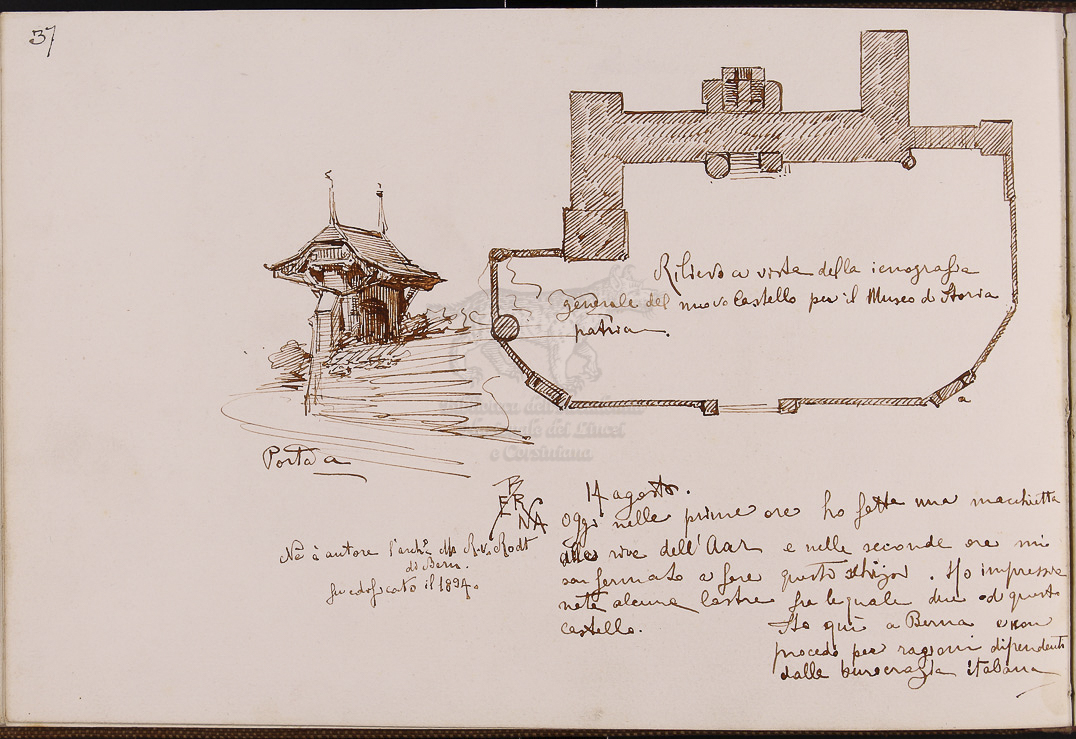 37
Rilievo a vista della icnografia
generale del nuovo Castello per il Museo di Storia
patria.
a
Porta a
BERNA
14 agosto.
Oggi nelle prime ore ho fatto una macchietta
alle rive dell'Aar e nelle seconde ore mi
son fermato a fare questo schizzo. Ho impressio
nato alcune lastre fra le quali due di questo
castello.
Sto qui a Berna e non
procedo per ragioni dipendenti
dalla burocrazia italiana
Ne è autore l'archo. R.v. Rodt
di Bern.
fu edificato il 1894.
Biblioteca dell'Accademia
Nazionale dei Lincei
e Corsiniana